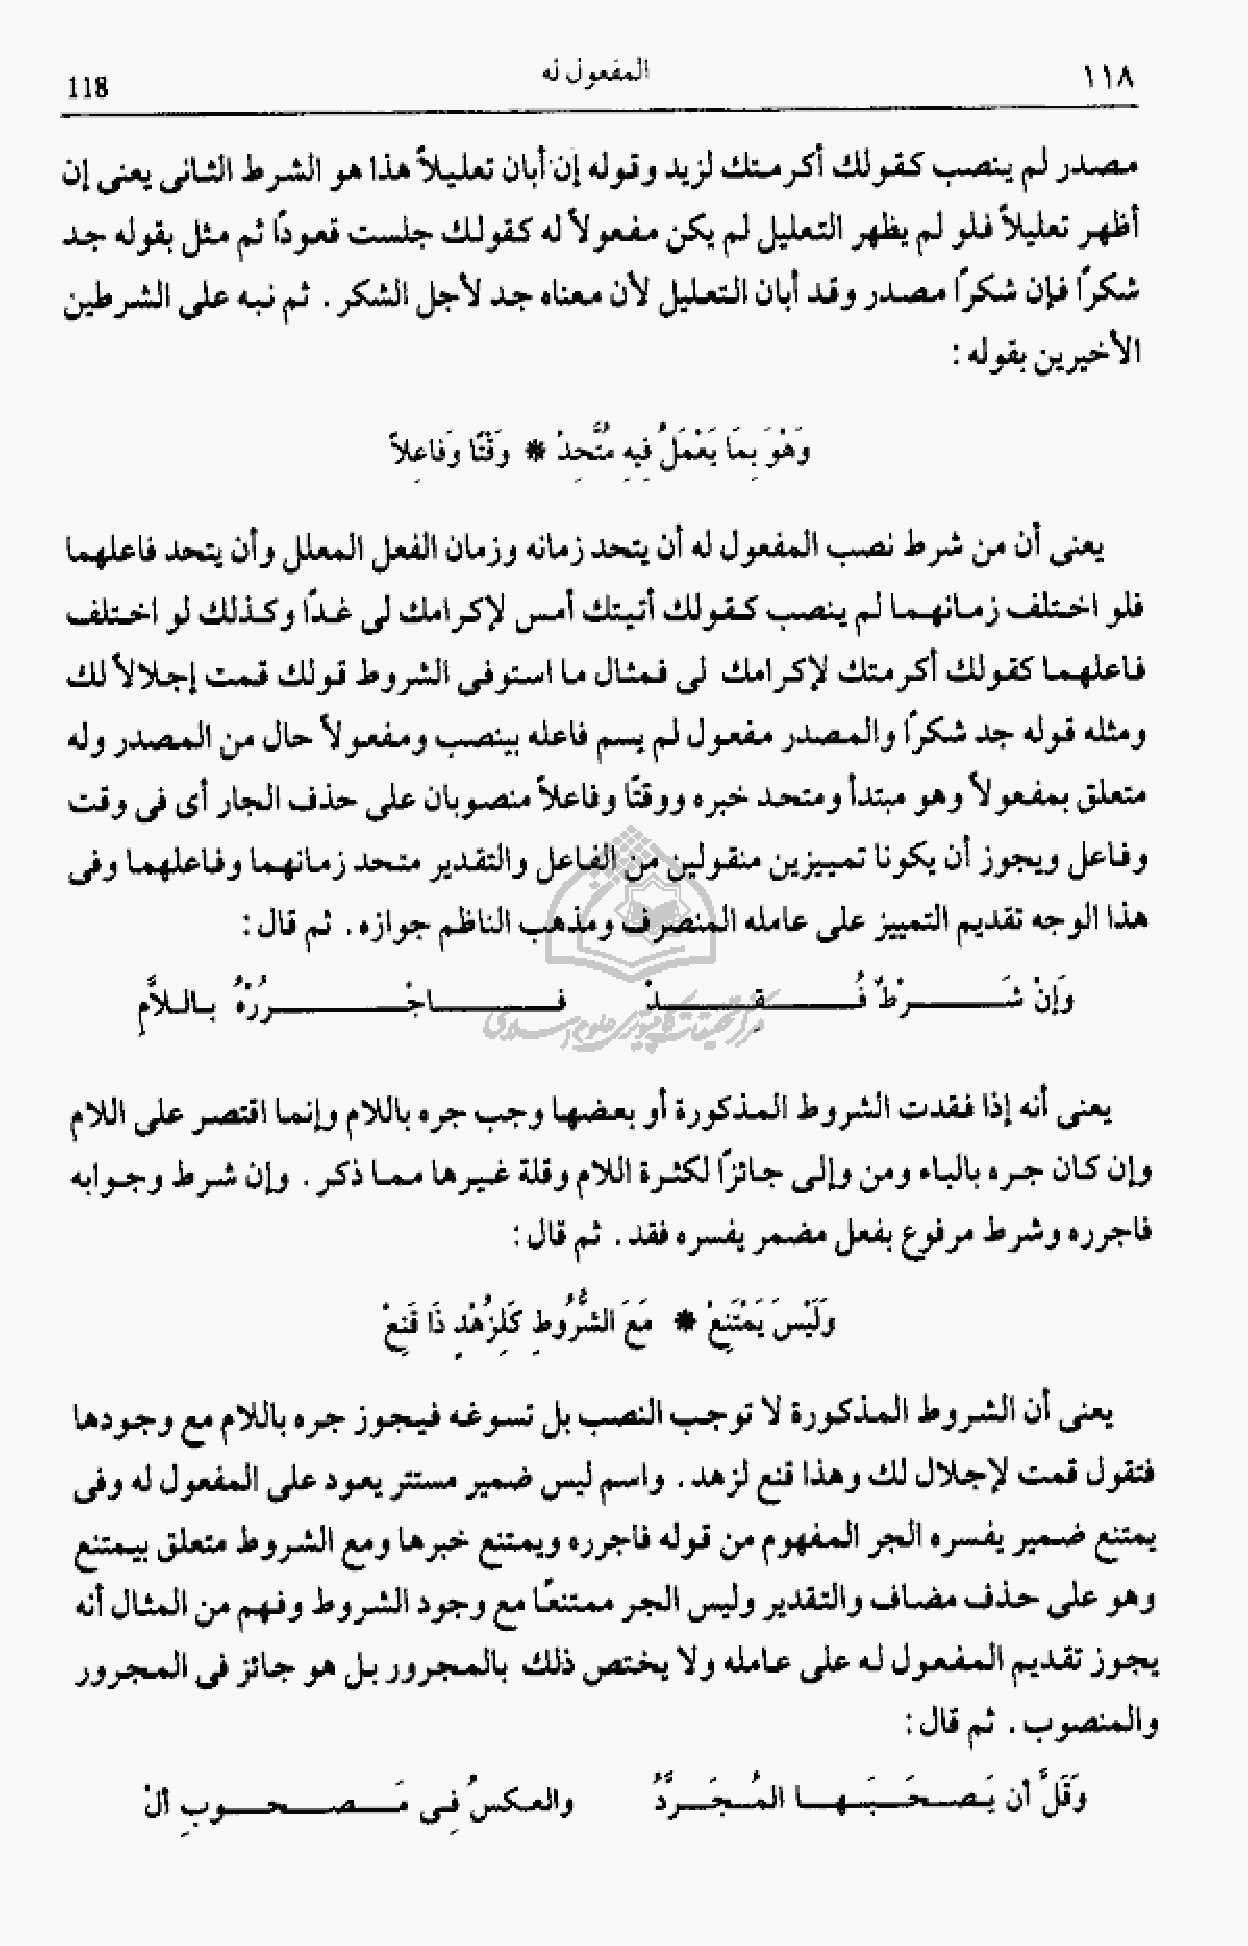 ١١٨
المفعول له
118
مصدر لم ينصب كقولك أكرمتك لزيد وقوله إن أبان تعليلاً هذا هو الشرط الثانى يعنى إن
أظهر تعليلاً فلو لم يظهر التعليل لم يكن مفعولاً له كقولك جلست قعودًا ثم مثل بقوله جد
شكرًا فإن شكرًا مصدر وقد أبان التعليل لأن معناه جد لأجل الشكر . ثم نبه على الشرطين
الأخيرين بقوله :
وَهْوَ بِمَا يَعْمَلُ فِيهِ مُتَّحِدْ * وَقْتًا وَفاعِلاً
يعنى أن من شرط نصب المفعول له أن يتحد زمانه وزمان الفعل المعلل وأن يتحد فاعلهما
فلو اختلف زمانهما لم ينصب كقولك أتيتك أمس لإكرامك لى غدًا وكذلك لو اختلف
فاعلهما كقولك أكرمتك لإكرامك لى فمثال ما استوفى الشروط قولك قمت إجلالاً لك
ومثله قوله جد شكرًا والمصدر مفعول لم يسم فاعله بينصب ومفعولاً حال من المصدر وله
متعلق بمفعولاً وهو مبتدأ ومتحد خبره ووقتًا وفاعلاً منصوبان على حذف الجار أى فى وقت
وفاعل ويجوز أن يكونا تمييزين منقولين من الفاعل والتقدير متحد زمانهما وفاعلهما وفى
هذا الوجه تقديم التمييز على عامله المنصرف ومذهب الناظم جوازه . ثم قال :
وَإنْ شَرْطٌ فُقِدْ فاخْرُرْهُ باللاَّمِ
مركز تحقيقات كامپيوتری علوم اسلامی
يعنى أنه إذا فقدت الشروط المذكورة أو بعضها وجب جره باللام وإنما اقتصر على اللام
وإن كان جره بالياء ومن وإلى جائزًا لكثرة اللام وقلة غيرها مما ذكر . وإن شرط وجوابه
فاجرره وشرط مرفوع بفعل مضمر يفسره فقد . ثم قال :
وَلَيْسَ يَمْتَنِعْ * مَعَ الشُّرُوطِ كَلِزُهْدٍ ذَا قَنِعْ
يعنى أن الشروط المذكورة لا توجب النصب بل تسوغه فيجوز جره باللام مع وجودها
فتقول قمت لإجلال لك وهذا قنع لزهد . واسم ليس ضمير مستتر يعود على المفعول له وفى
يمتنع ضمير يفسره الجر المفهوم من قوله فاجرره ويمتنع خبرها ومع الشروط متعلق بيمتنع
وهو على حذف مضاف والتقدير وليس الجر ممتنعًا مع وجود الشروط وفهم من المثال أنه
يجوز تقديم المفعول له على عامله ولا يختص ذلك بالمجرور بل هو جائز فى المجرور
والمنصوب . ثم قال :
وَقَلَّ أن يَصحَبَها المُجَرَّدُ والعكسُ فِى مَصحوبِ ألْ